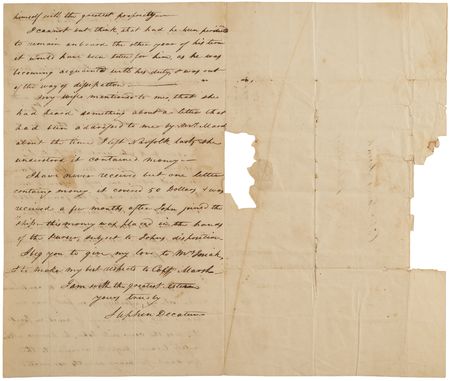 himself with the greatest propriety—
I cannot but think that had he been permitted
to remain onboard the other year of his time
it would have been better for him, as he was
becoming acquainted with his duty, & was out
of the way of dissipation —
My wife mentioned to me, that she
had heard something about a letter that
had been addressed to me by Mrs. Marsh
about the time I left Norfolk last, she
understood it contained money —
I have never received but one letter
containing money. it covered 50 Dollars, & was
received a few months after John joined the
ship - this money was placed in the hands
of the Purser, subject to Johns disposition
I beg you to give my love to Mrs
& to make my best respects to Capt Marsh
I am with the greatest esteem
yours truly
Stephen Decatur